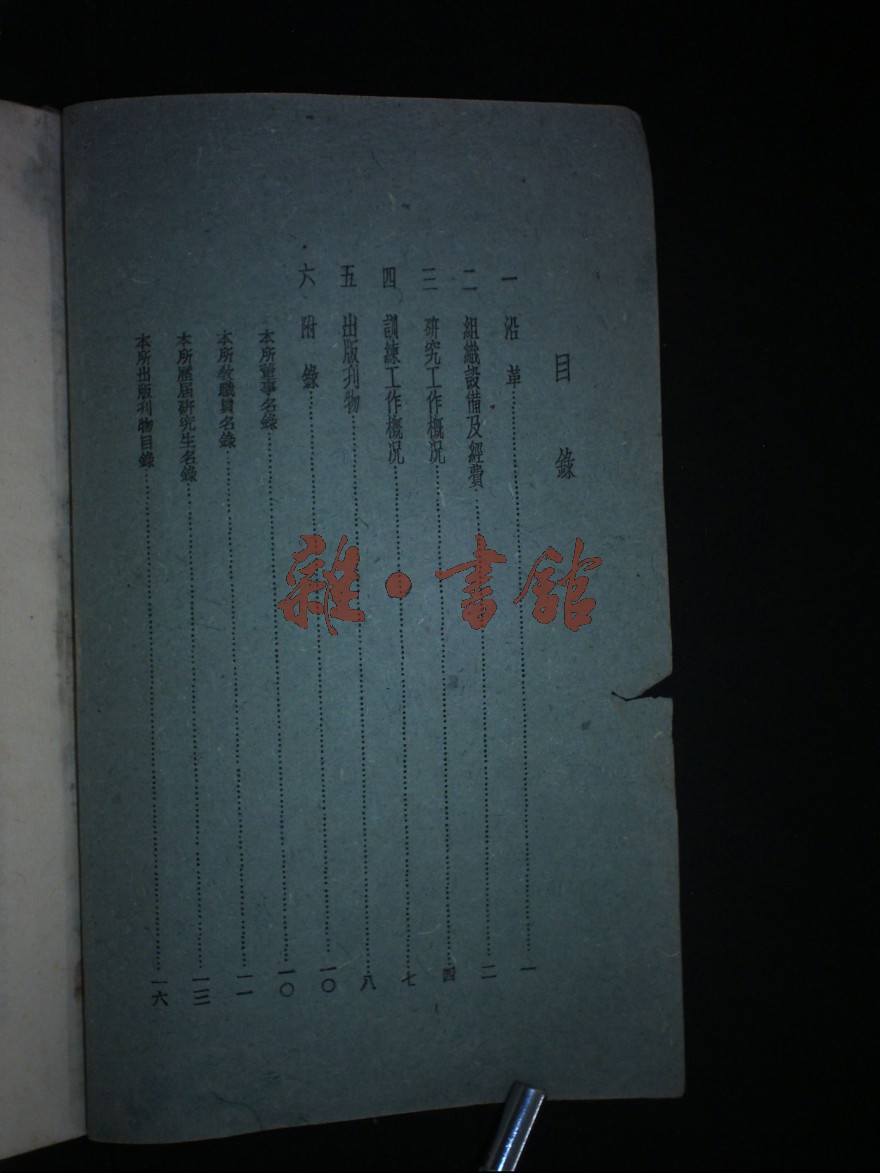 目錄
一 沿革……一
二 組織設備及經費……二
三 研究工作概況……四
四 訓練工作概況……七
五 出版刊物……八
六 附錄……一〇
本所董事名錄……一〇
本所教職員名錄……一一
本所歷屆研究生名錄……一三
本所出版刊物目錄……一六
雜·書館